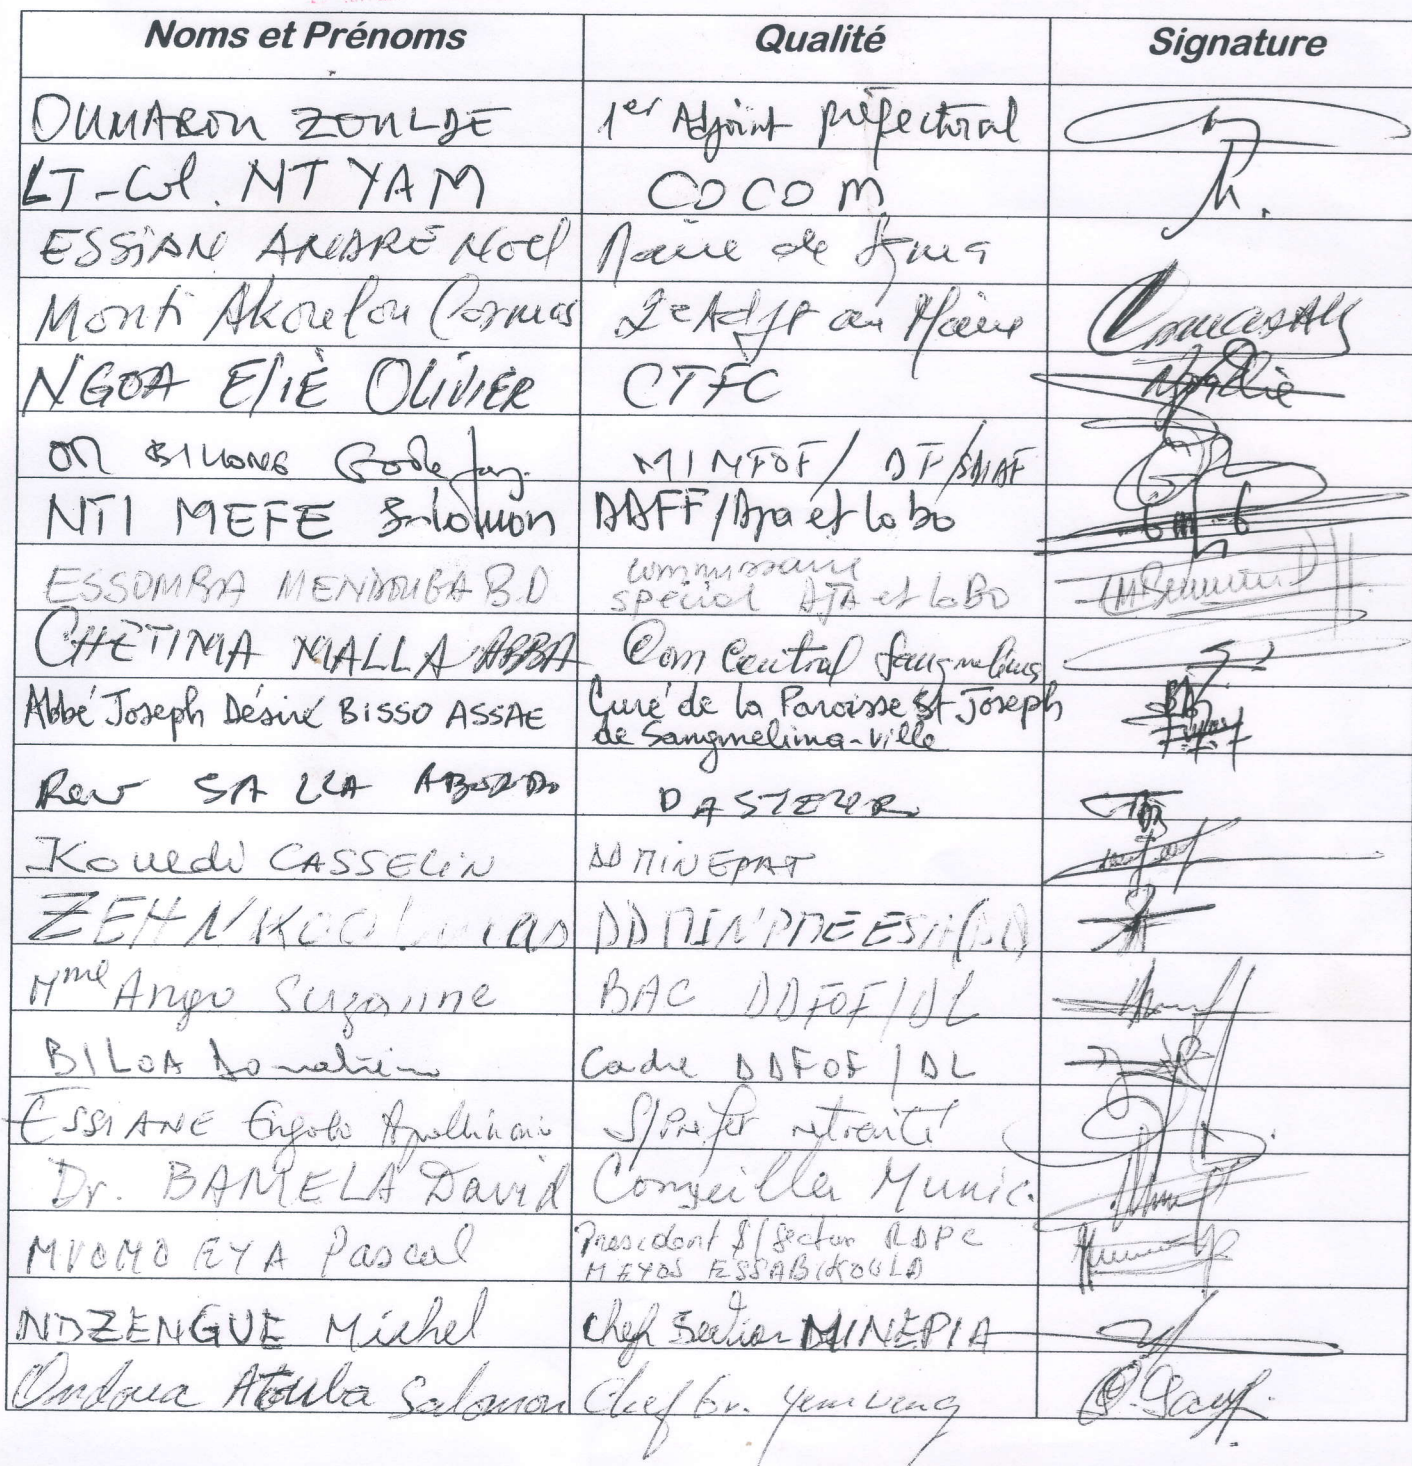 Noms et Prénoms Qualité Signature
OUMAROU ZOULDE 1er Adjoint préfectoral
LT-Col. NTYAM COCOM
ESSIANE ANDRÉ Noël Maire de Sgma
Monti Akoulou Cosmas 2e Adjt au Maire
NGOA ElIÈ OLIVIER CTFC
BILLONG MINFOF/DF/SNAF
NTI MEFE Salomon DDFF/Dja et lobo
ESSOMBA MENDOUGA B.D commissaire
spécial DJA et LoBo
CHETIMA MALLA ABBA Com Central Sangmelima
Abbé Joseph Désiré BISSO ASSAE Curé de la Paroisse St Joseph
de Sangmelima-ville
Rev SALLA PASTEUR
Kouedi CASSELIN DD MINEPAT
ZEH DD MINPMEESA
Mme Ango Suzanne BAC DDFOF/DL
BILOA Donatien Cadre DDFOF/DL
ESSIANE Engolo Apollinaire S/Préfet retraité
Dr. BAMELA David Conseiller Munic.
MVOMO EYA Pascal Président S/Section RDPC
MEYOS ESSABIKOULA
NDZENGUE Michel Chef Section MINEPIA
Ondoua Atouba Salomon Chef Gr. Yemveng